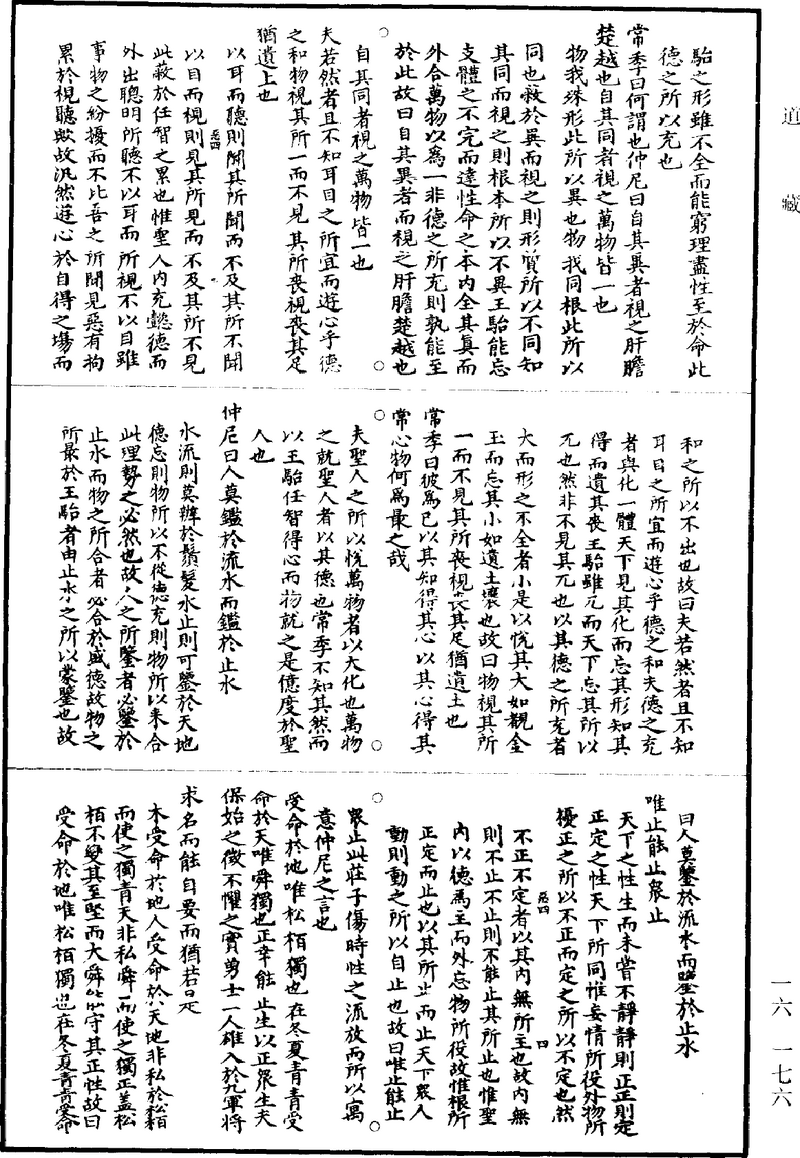 道藏
駘之形雖不全而能窮理盡性至於命此
德之所以充也
常季曰何謂也仲尼曰自其異者視之肝膽
楚越也自其同者視之萬物皆一也
物我殊形此所以異也物我同根此所以
同也蔽於異而視之則形質所以不同知
其同而視之則根本所以不異王駘能忘
支體之不完而達性命之本内全其真而
外合萬物以為一非德之所充則孰能至
於此故曰自其異者而視之肝膽楚越也
○
自其同者視之萬物皆一也
○
夫若然者且不知耳目之所宜而遊心乎德
之和物視其所一而不見其所喪視喪其足
猶遺土也
以耳而聽則聞其所聞而不及其所不聞
以目而視則見其所見而不及其所不見
此蔽於任智之累也惟聖人内充懿德而
外出聰明所聽不以耳而所視不以目雖
事物之紛擾而不比吾之所聞見惡有拘
累於視聽歟故汎然遊心於自得之場而
和之所以不出也故曰夫若然者且不知
耳目之所宜而遊心乎德之和夫德之充
者與化一體天下見其化而忘其形知其
得而遺其喪王駘雖兀而天下忘其所以
兀也然非不見其兀也以其德之所充者
大而形之不全者小是以悅其大如觀金
玉而忘其小如遺土壤也故曰物視其所
一而不見其所喪視喪其足猶遺土也
常季曰彼為己以其知得其心以其心得其
○
常心物何為最之哉
夫聖人之所以悅萬物者以大化也萬物
○
之就聖人者以其德也常季不知其然而
以王駘任智得心而物就之是億度於聖
人也
仲尼曰人莫鑑於流水而鑑於止水
水流則莫辨於鬚髮水止則可鑒於天地
德忘則物所以不從德充則物所以來合
此理勢之必然也故人之所鑒者必鑒於
止水而物之所合者必合於盛德故物之
所最於王駘者由止水之所以蒙鑒也故
曰人莫鑒於流水而鑒於止水
唯止能止衆止
天下之性生而未嘗不靜靜則正正則定
正定之性天下所同惟妄情所役外物所
擾正之所以不正而定之所以不定也然
不正不定者以其内無所主也故内無
則不止不止則不能止其所止也惟聖
内以德為主而外忘物所役故惟根所
正定而止也以其所止而止天下衆人
動則動之所以自止也故曰唯止能止
○
衆止此莊子傷時性之流放而所以寓
○
意仲尼之言也
受命於地唯松栢獨也在冬夏青青受
命於天唯舜獨也正幸能止生以正衆生夫
保始之徵不懼之實勇士一人雄入於九軍將
求名而能自要而猶若是
木受命於地人受命於天地非私於松栢
而使之獨青天非私舜而使之獨正盖松
栢不變其至堅而大舜能守其正性故曰
受命於地唯松栢獨也在冬夏青青受命
一六 一七六